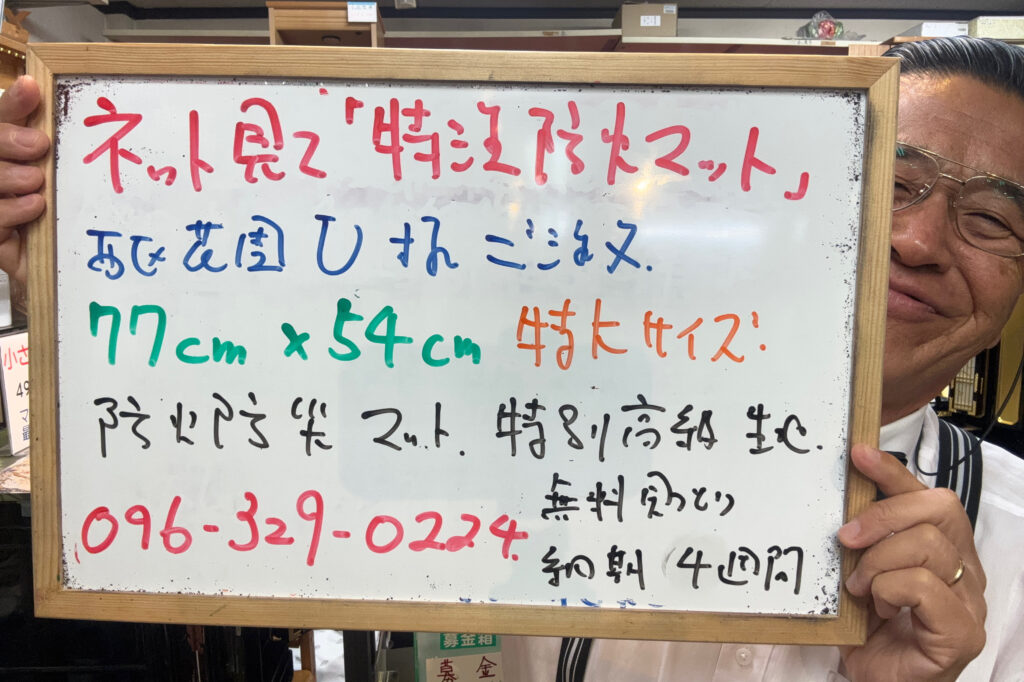 ネット見て「特注防火マット」
花園 ご注文.
77cm×54cm 特大サイズ!
防火防災マット. 特別高級生地.
無料見つもり
096-329-0224
納期 4週間
小さ
募金箱
募金